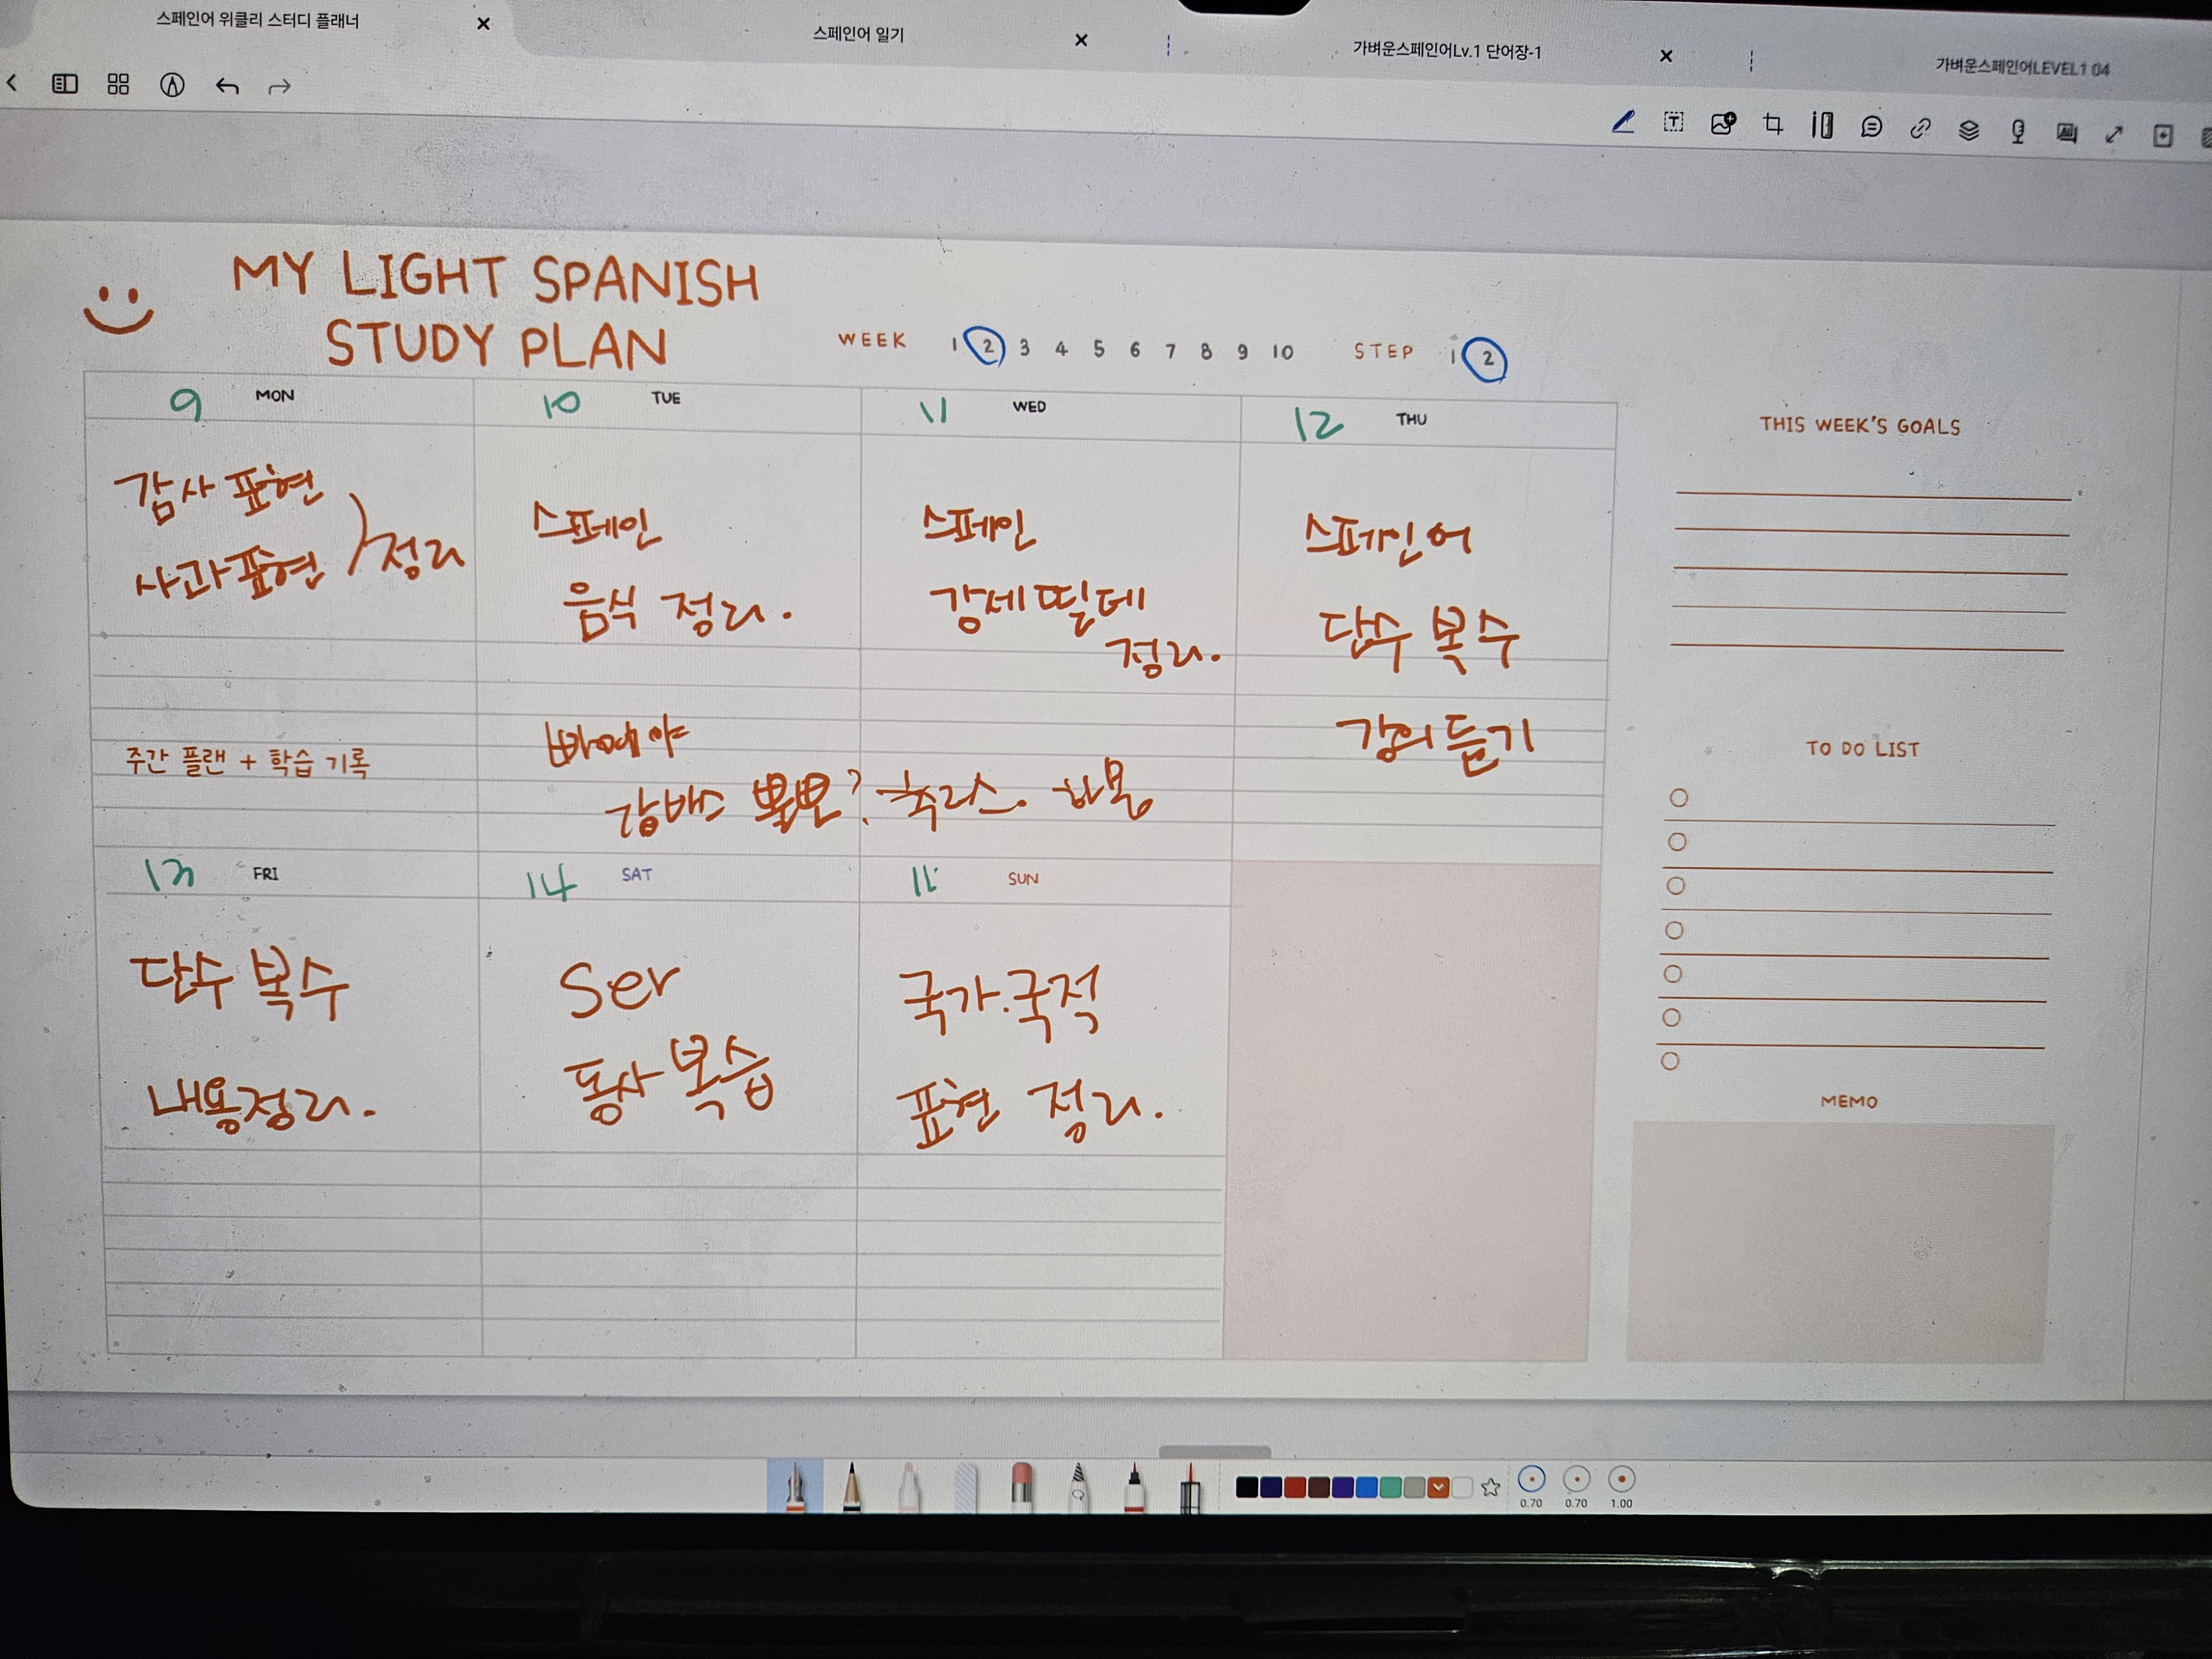 스페인어 위클리 스터디 플래너
스페인어 일기
가벼운스페인어Lv.1 단어장-1
가벼운스페인어LEVEL1 04
MY LIGHT SPANISH
STUDY PLAN
WEEK 1 2 3 4 5 6 7 8 9 10 STEP 1 2
9 MON
감사 표현
사과 표현 정리
주간 플랜 + 학습 기록
10 TUE
스페인
음식 정리.
빠에야
감바스 뽈뽀? 츄러스. 하몽
11 WED
스페인
강세 띨데
정리.
12 THU
스페인어
단수 복수
강의 듣기
13 FRI
단수 복수
내용정리.
14 SAT
Ser
동사 복습
SUN
국가.국적
표현 정리.
THIS WEEK'S GOALS
TO DO LIST
MEMO
0.70 0.70 1.00